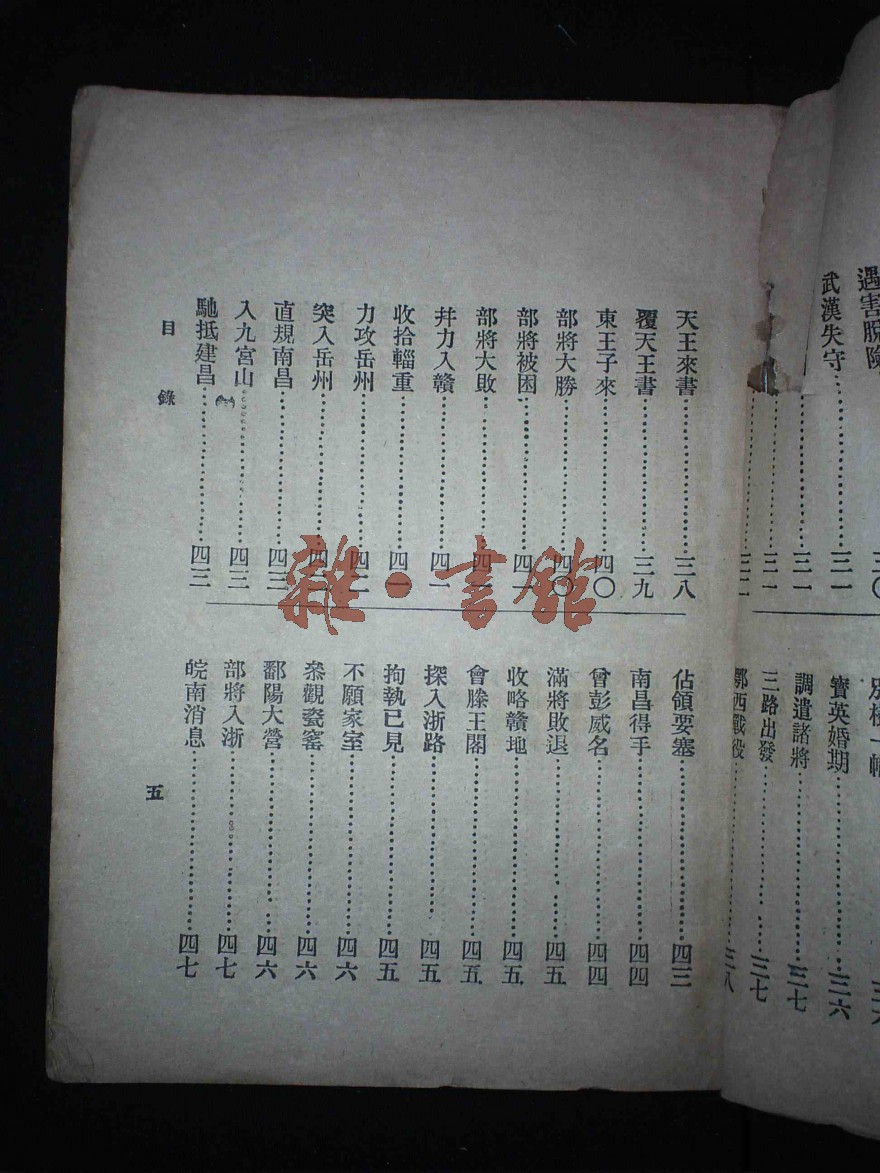 遇害脫險……三〇
武漢失守……三一
三一
三一
寶英婚期……三六
調遣諸將……三七
三路出發……三七
鄂西戰役……三八
天王來書……三八
覆天王書……三九
東王子來……四〇
部將大勝……四〇
部將被困……四一
部將大敗……四一
幷力入贛……四一
收拾輜重……四一
力攻岳州……四二
突入岳州……四二
直規南昌……四三
入九宮山……四三
馳抵建昌……四三
佔領要塞……四三
南昌得手……四四
曾彭威名……四四
滿將敗退……四五
收略贛地……四五
會滕王閣……四五
探入浙路……四五
拘執已見……四五
不願家室……四六
叅觀瓷窰……四六
鄱陽大營……四六
部將入浙……四七
皖南消息……四七
目錄
五
雜·書館